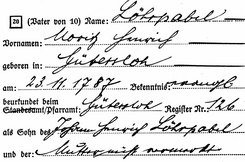 20 (Vater von 10) Name: Löhrpabel
Vornamen: Moritz Heinrich
geboren in: Gütersloh
am: 23.11.1787 Bekenntnis: evangl
beurkundet beim Standesamt/Pfarramt: Gütersloh Register Nr. 126
als Sohn des Johann Heinrich Löhrpabel
und der: